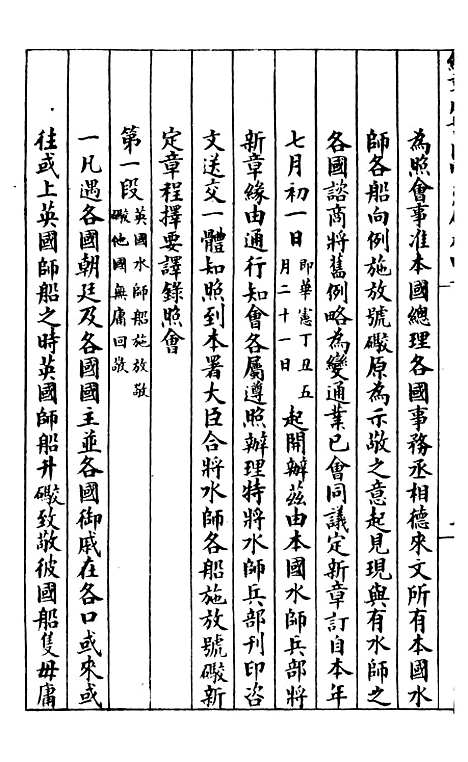 為照會事准本國總理各國事務丞相德來文所有本國水
師各船向例施放號礮原為示敬之意起見現與有水師之
各國諮商將舊例略為變通業已會同議定新章訂自本年
七月初一日即華憲丁丑五月二十一日起開辦茲由本國水師兵部將
新章緣由通行知會各屬遵照辦理特將水師兵部刊印咨
文送交一體知照到本署大臣合將水師各船施放號礮新
定章程擇要譯錄照會
第一段英國水師船施放敬礮他國無庸回敬
一凡遇各國朝廷及各國國主並各國御戚在各口或來或
往或上英國師船之時英國師船升礮致敬彼國船隻毋庸